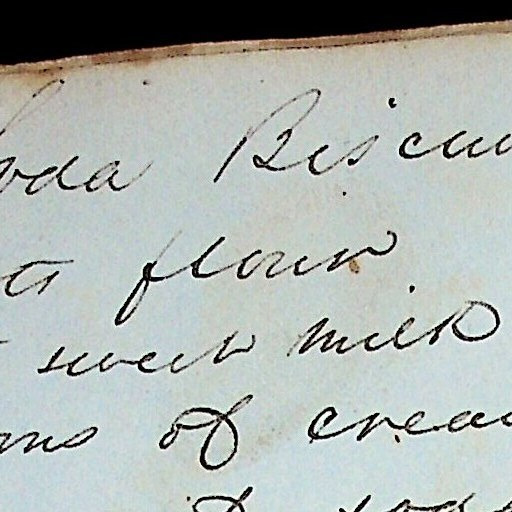 Soda Biscui
ts flour
sweet milk
ms of crea
soda